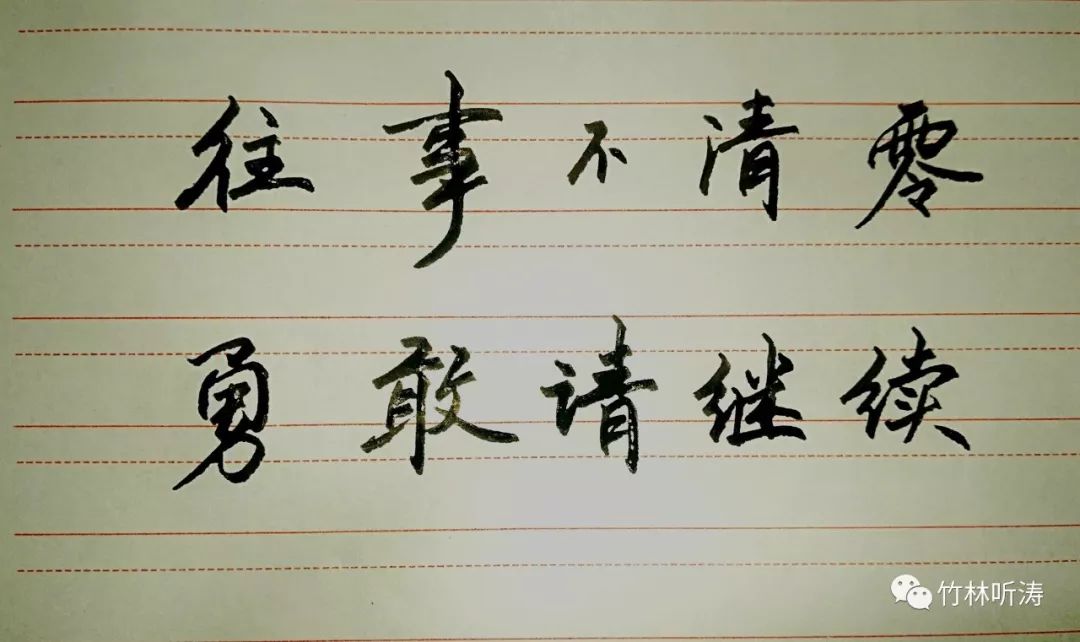 往事不清零
勇敢请继续
竹林听涛